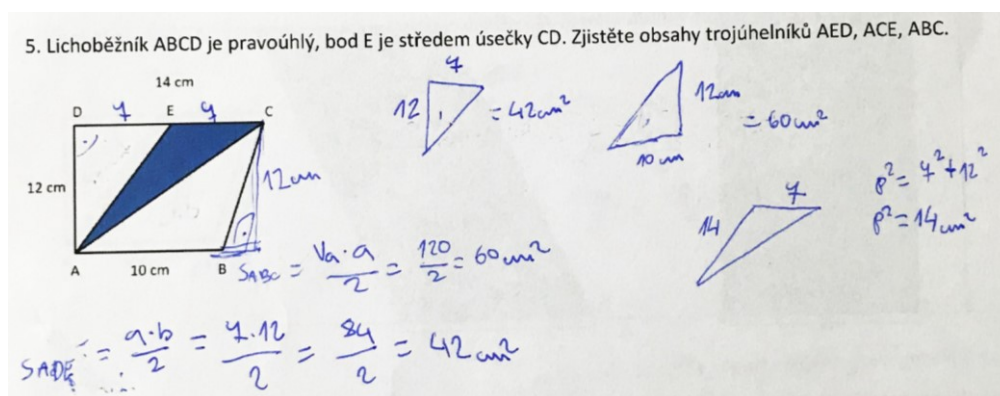 5. Lichoběžník ABCD je pravoúhlý, bod E je středem úsečky CD. Zjistěte obsahy trojúhelníků AED, ACE, ABC.
14 cm
D 7 E 7 C
12 cm
12cm
A 10 cm B
7
12 = 42cm²
12cm
= 60cm²
10 cm
7
14
p² = 7² + 12²
p² = 14cm²
SABC = Va · a / 2 = 120 / 2 = 60cm²
SADE = a · b / 2 = 7 · 12 / 2 = 84 / 2 = 42cm²